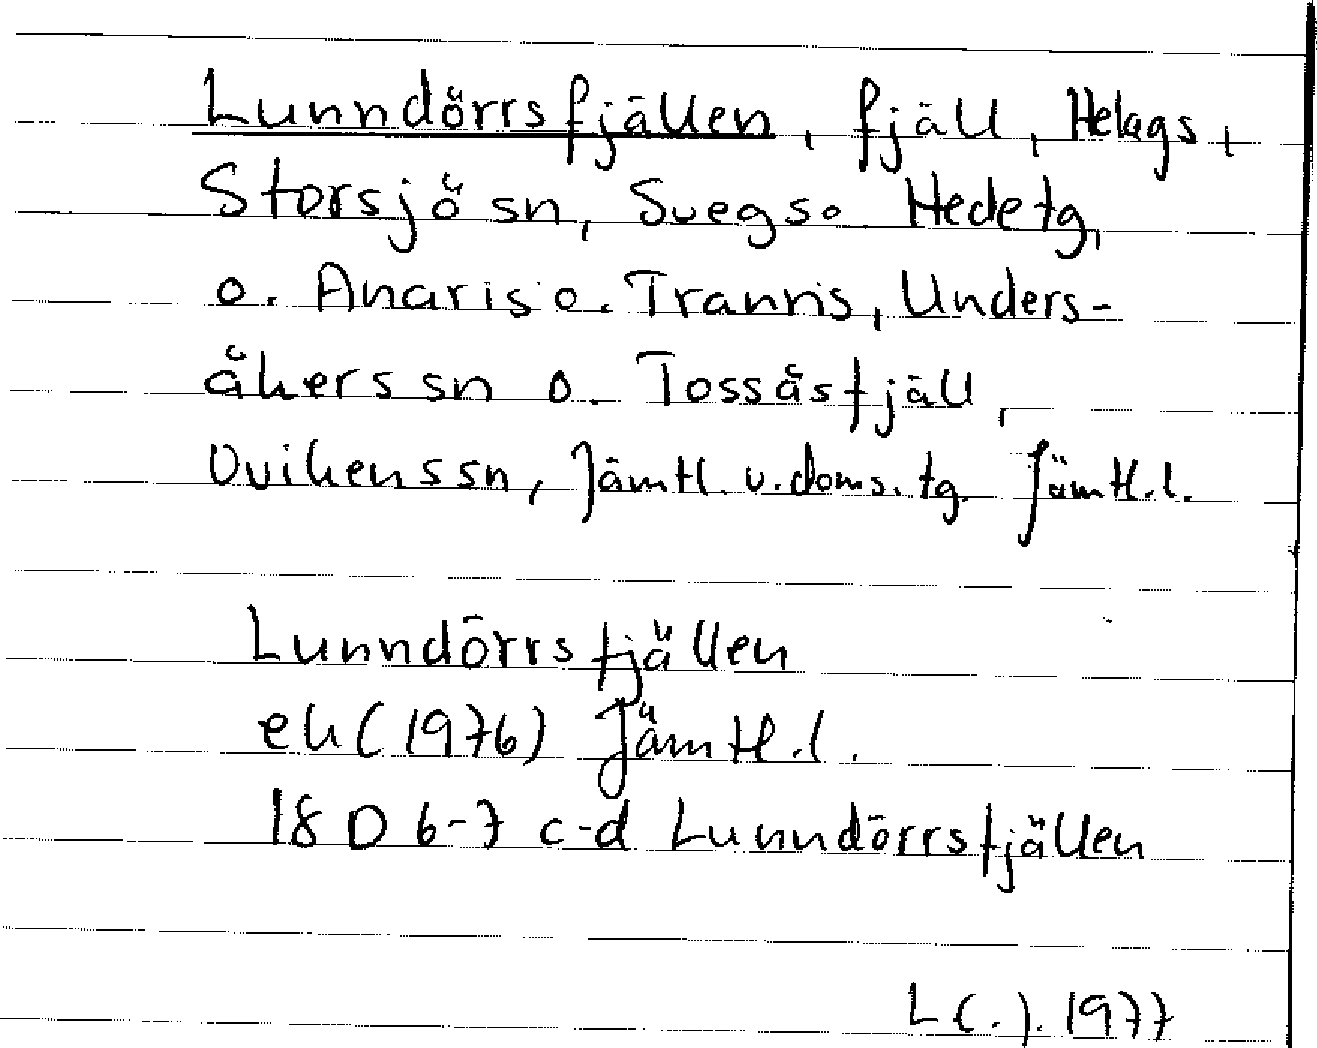 Lunndörrsfjällen, fjäll, Helags,
Storsjö sn, Svegs o Hede tg,
o. Anaris o. Tranris, Unders-
åkers sn o. Tossåsfjäll,
Ovikens sn, Jämtl. v. doms. tg. Jämtl. l.
Lunndörrsfjällen
ek (1976) Jämtl. l.
18 D 6-7 c-d Lunndörrsfjällen
L(.). 1977